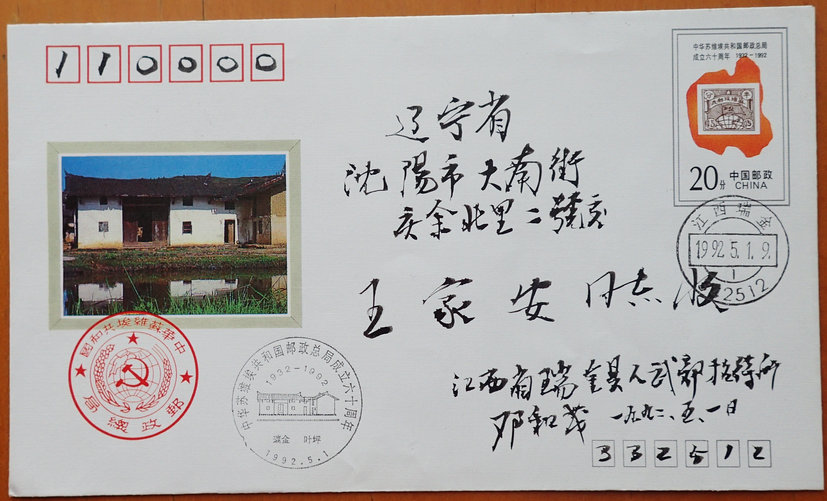 110000
中华苏维埃共和国邮政总局
成立六十周年 1932-1992
20分 中国邮政
CHINA
辽宁省
沈陽市大南街
庆余北里二號
王家安同志收
江西瑞金
1992.5.1.9
1
2512
中華蘇維埃共和國
郵政總局
中华苏维埃共和国邮政总局成立六十周年
1932-1992
瑞金 叶坪
1992.5.1
江西省瑞金县人武部招待所
邓和茂 一九九二.五.1日
332512